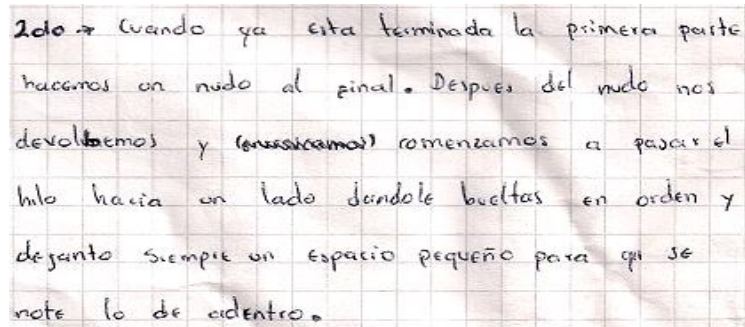 2do → Cuando ya esta terminada la primera parte
hacemos un nudo al final. Despues del nudo nos
devolbemos y comenzamos a pasar el
hilo hacia un lado dandole bueltas en orden y
dejanto siempre un espacio pequeño para qu se
note lo de adentro.